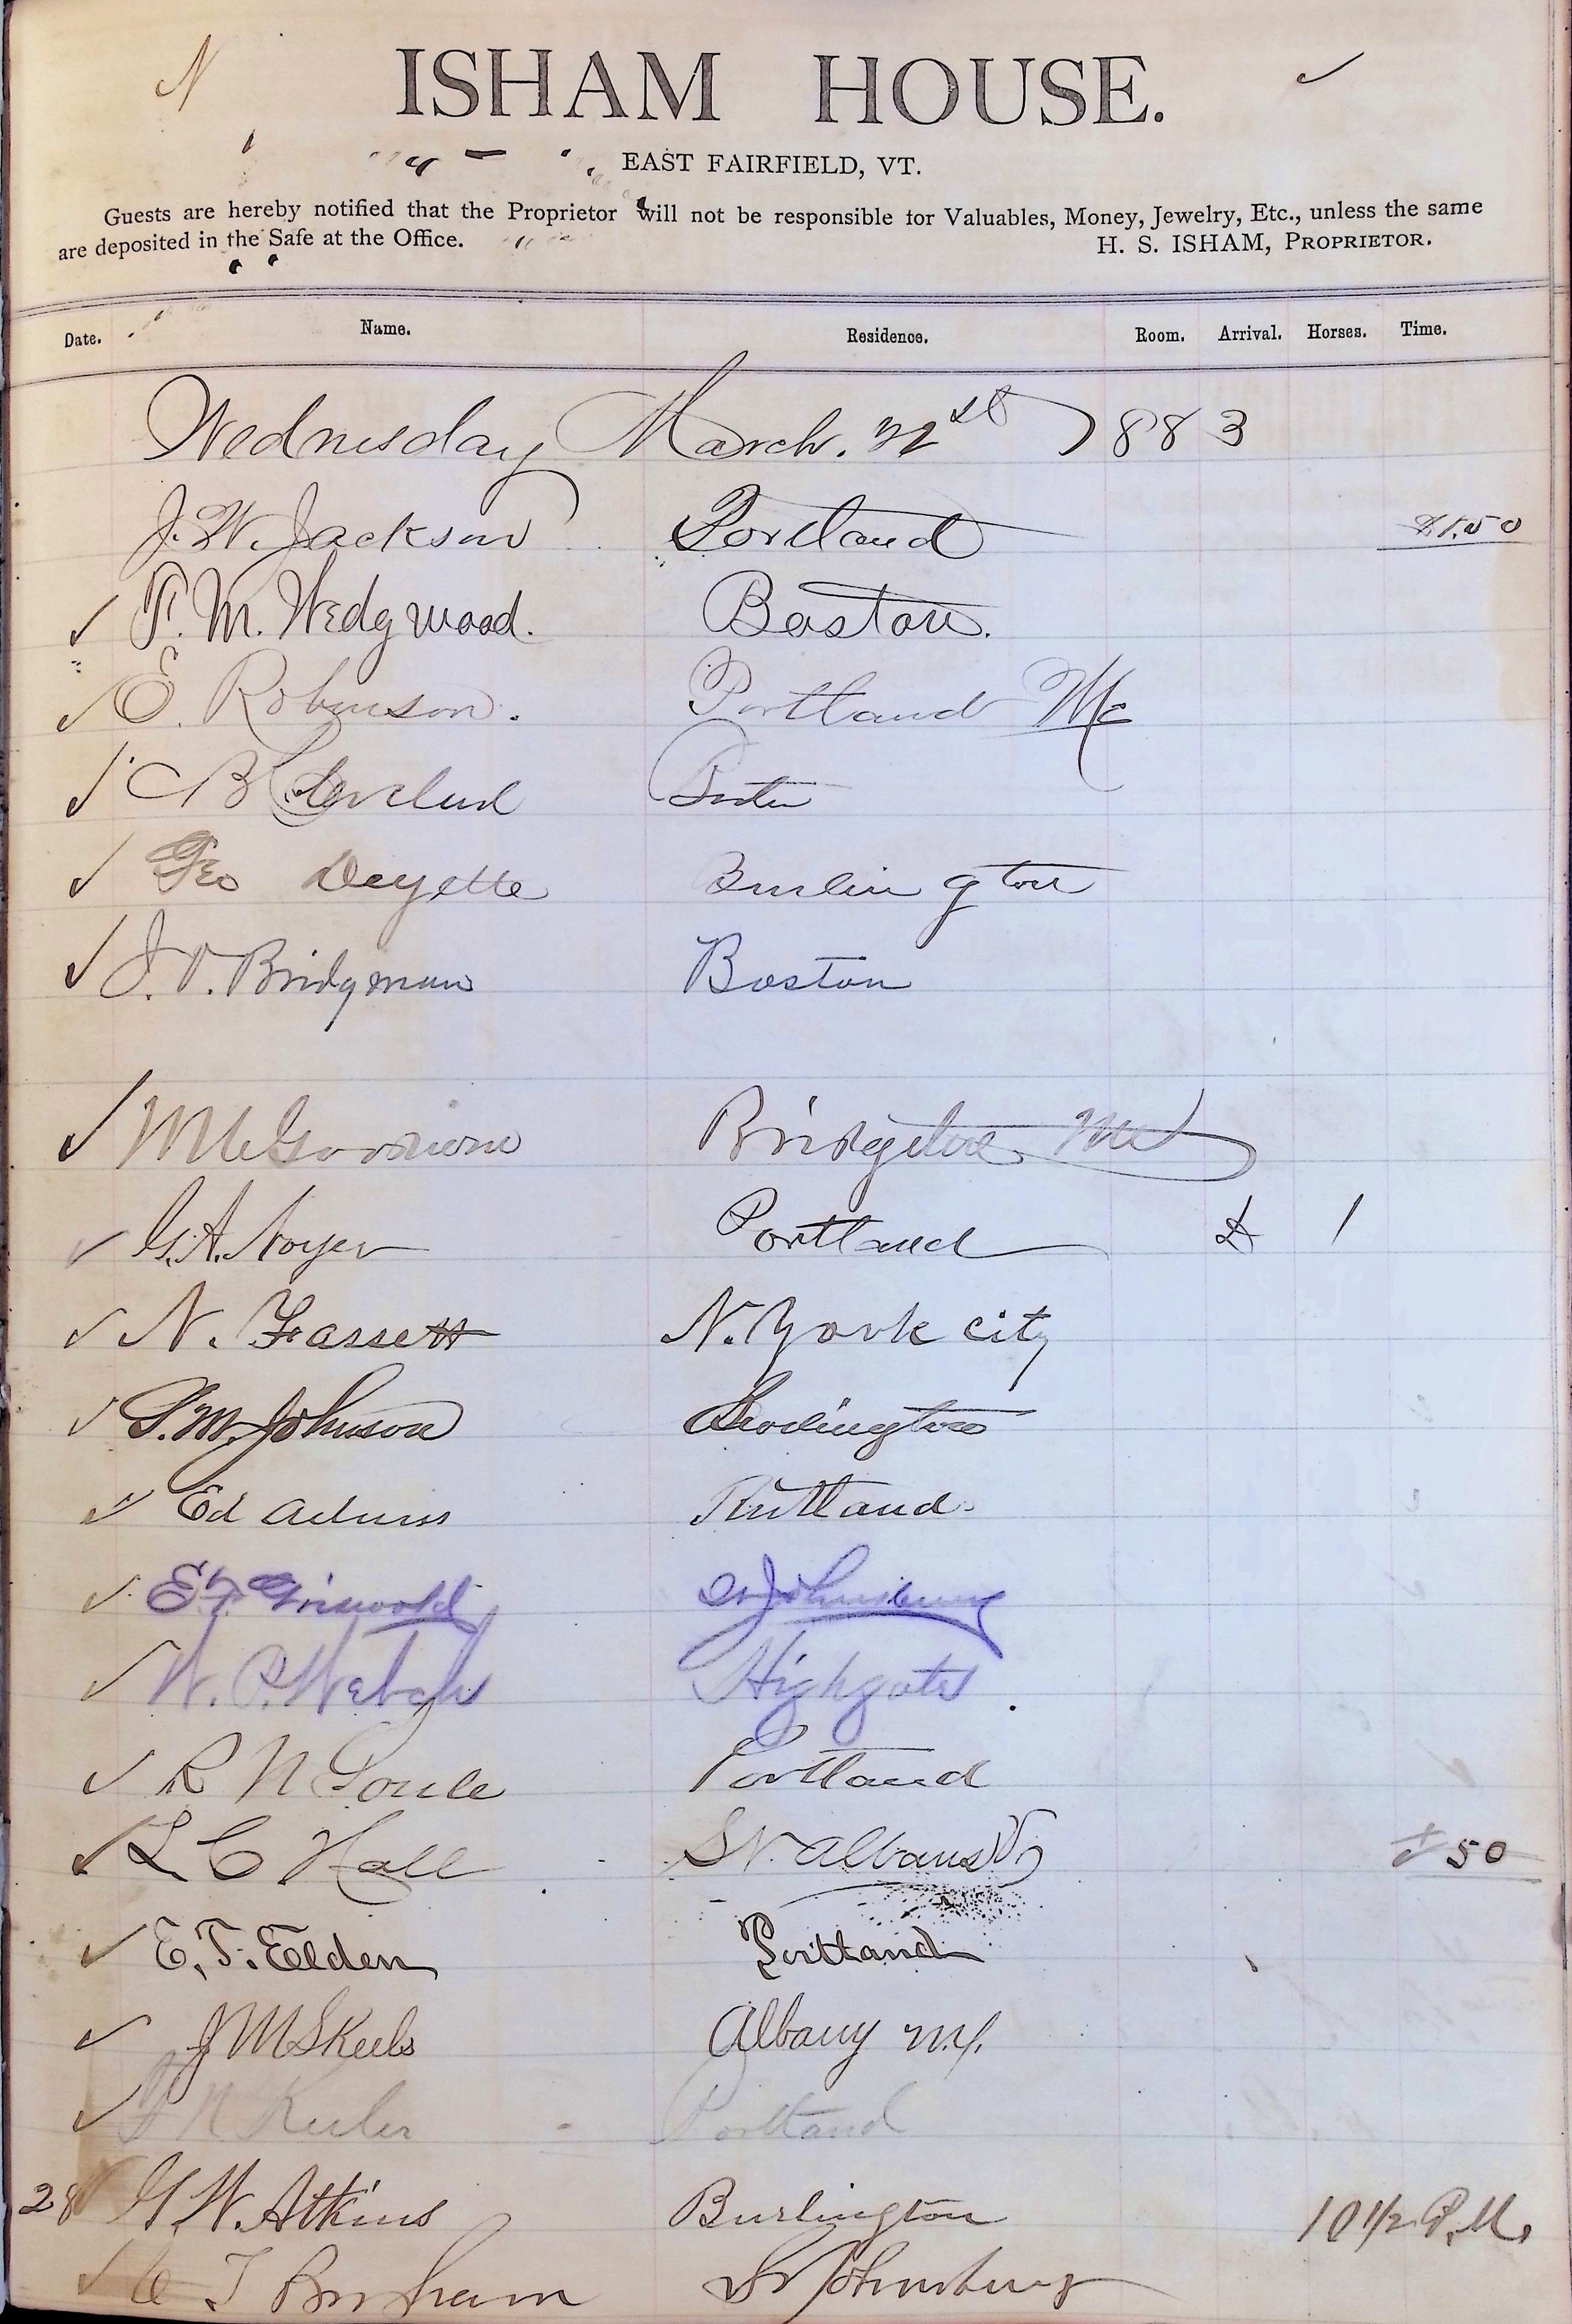 ISHAM HOUSE.
EAST FAIRFIELD, VT.
Guests are hereby notified that the Proprietor will not be responsible for Valuables, Money, Jewelry, Etc., unless the same
are deposited in the Safe at the Office.
H. S. ISHAM, PROPRIETOR.
Date. Name. Residence. Room. Arrival. Horses. Time.
Wednesday March. 1883
J. W. Jackson Portland $1.50
F. M. Wedgwood. Boston.
E. Robinson. Portland Me
C B Cleveland Boston
Geo Deyette Burlington
J. V. Bridgman Boston
Bridgton Me
G. A. Noyes Portland 1
N. Fassett N. York city
S. M. Johnson Burlington
Ed Adams Rutland
E. F. Griswold St Johnsbury
W. P. Welch Highgate
R N Soule Portland
L C Hall St. Albans Vt 50
E. T. Elden Portland
J M Skeels Albany N.Y.
Portland
28 G. W. Atkins Burlington 10 1/2 P.M.
St Johnsbury